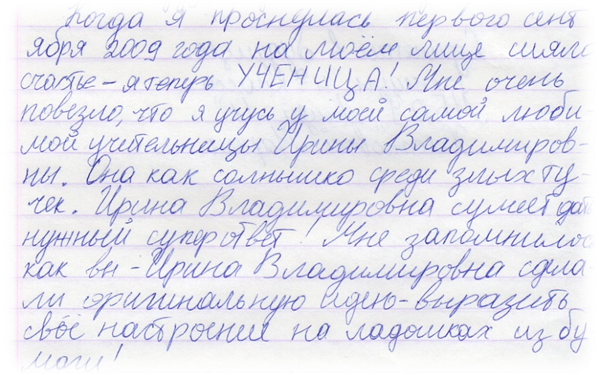 Когда я проснулась первого сент
ября 2009 года на моём лице сияло
счастье – я теперь УЧЕНИЦА! Мне очень
повезло, что я учусь у моей самой люби-
мой учительницы Ирины Владимиров-
ны. Она как солнышко среди злых ту-
чек. Ирина Владимировна сумеет дать
нужный суперответ! Мне запомнилось
как вы – Ирина Владимировна сдела-
ли оригинальную идею – выразить
своё настроение на ладошках из бу
маги!